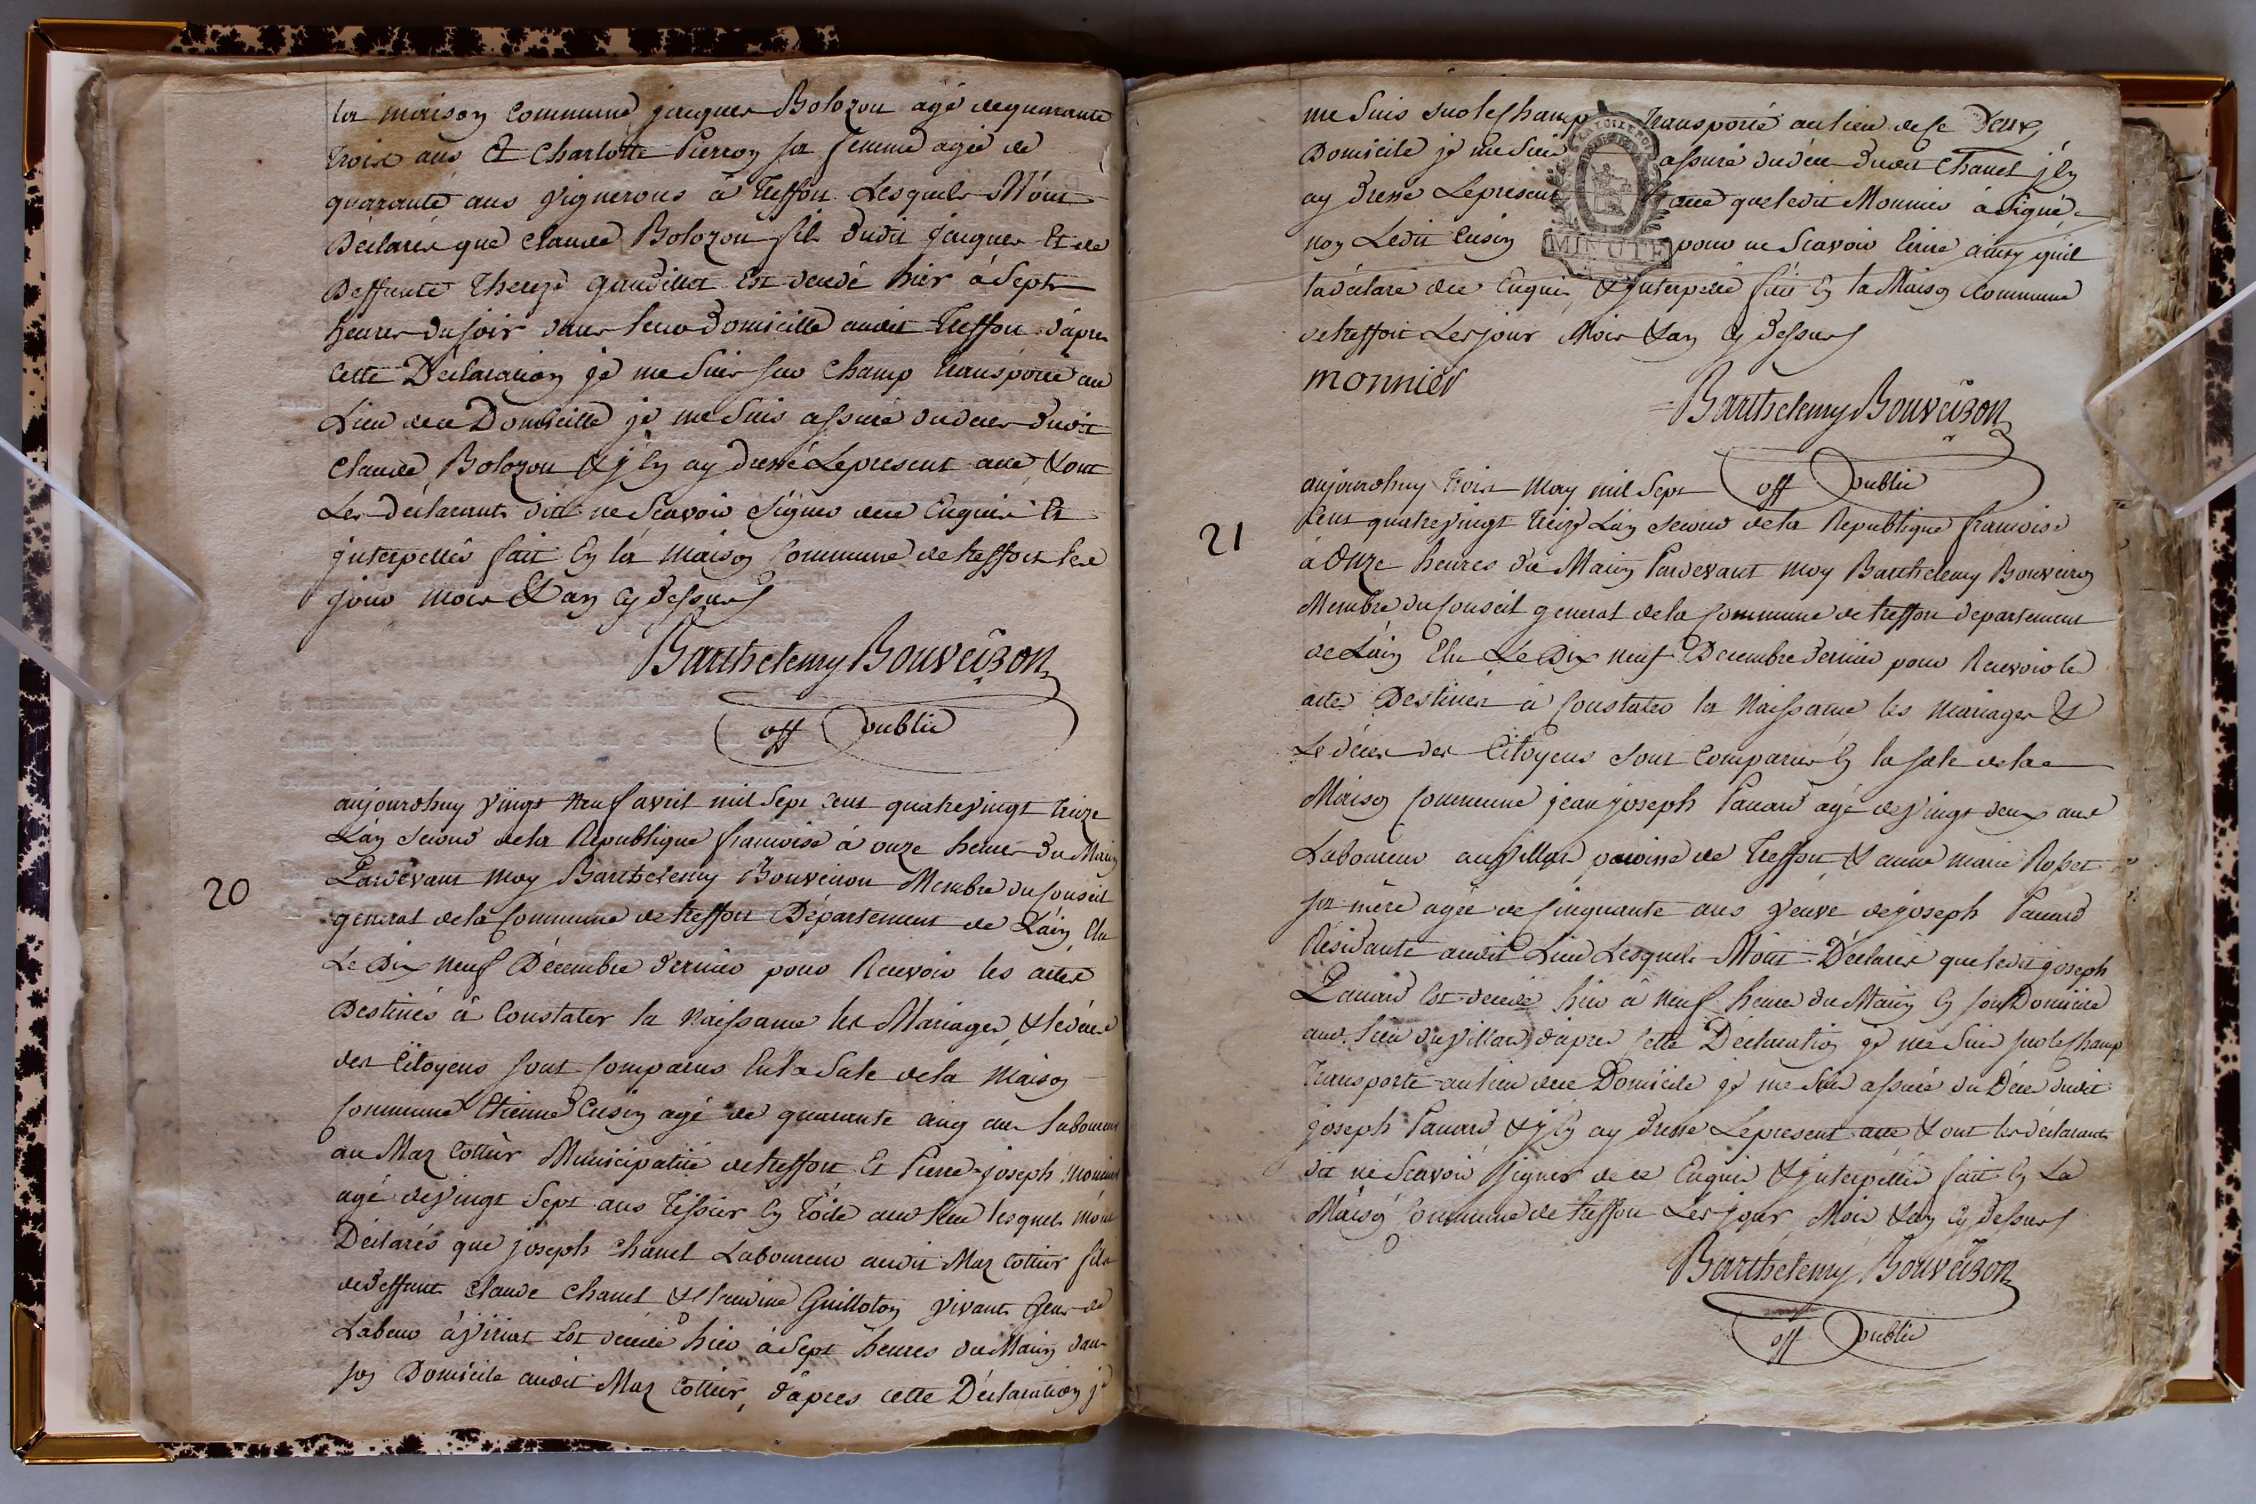 la maison Commune jacques Bolozon agé dequarante
trois ans Et Charlotte Pierron sa femme agée de
quarante ans vignerons à Treffort Lesquels M'ont
Déclarés que Claude Bolozon fils dudit jacques Et de
Deffunte Thereze Gaudillat Est décédé hier à Sept
heures du soir dans leur Domicille audit Treffort d'apres
Cette Déclaration je me Suis sur Champ transporté au
Lieu dece Domicille je me Suis assuré du deces dudit
Claude Bolozon & j'En ay dressé Lepresent acte & ont
Les déclarants dit ne Scavoir signer dece Enquis Et
interpellés fait En la maison Commune de treffort les
jour mois & an cy dessus
Barthelemy Bouveiron
off public
20
aujourdhuy vingt neuf avril mil Sept cent quatrevingt treize
L'an Second dela Republique francoise à onze heures du Matin
Pardevant moy Barthelemy Bouveiron Membre du Conseil
general dela Commune de treffort Département de L'ain Elu
Le Dix neuf Décembre dernier pour Recevoir les actes
Destinés à Constater la Naissance les Mariages & le décès
des Citoyens sont Comparus En la Sale dela Maison
Commune Etienne Cusin agé de quarante cinq ans laboureur
au Maz Cottier Municipalité detreffort Et Pierre-joseph monnier
agé devingt Sept ans Tissier En Toile aud lieu lesquels mont
Déclarés que joseph Chanel Laboureur audit Maz Cottier fils
dedeffunt Claude Chanel & Claudine Guilloton vivants Gens de
Labeur à viriat Est décédé hier à Sept heures du Matin dans
son Domicile audit Maz Cottier, d'apres cette Déclaration je
me Suis surleChamp transporté aulieu de ce Deux
Domicile je me Suis assuré dudéces dudit Chanel j'En
ay dressé Lepresent acte queledit Monnier à signé
non Ledit Cusin pour ne Scavoir Ecrire ainsy quil
la déclaré dece Enquis & interpellé fait En la Maison Commune
detreffort Les jour Mois & an cy dessus
MINUTE
monnier
Barthelemy Bouveiron
off public
21
aujourdhuy trois May mil Sept
Cent quatrevingt treize L'an Second dela Republique francoise
à Onze heures du Matin Pardevant moy Barthelemy Bouveiron
Membre du Conseil general dela Commune de treffort departement
de L'ain Elu Le Dix neuf Decembre dernier pour Recevoir les
actes Destinés à Constater la Naissance les Mariages &
Le déces des Citoyens sont Comparus En la sale dela
Maison Commune jean joseph Panard agé devingt deux ans
Laboureur au villard paroisse de Treffort & anne marie Rosset
sa mère agée de Cinquante ans veuve de joseph Panard
Résidante audit Lieu Lesquels Mont Déclarés queledit joseph
Panard Est décédé hier à Neuf heures du Matin En son Domicile
aud. lieu du villard d'apres Cette Déclaration je me Suis surlechamp
transporté aulieu dece Domicile je me Suis assuré du Décès dudit
joseph Panard, & j'En ay dressé Lepresent acte & ont les déclarants
dit ne Scavoir signer de ce Enquis & interpellés fait En La
Maison Commune de treffort Les jour Mois & an cy dessus
Barthelemy Bouveiron
off public